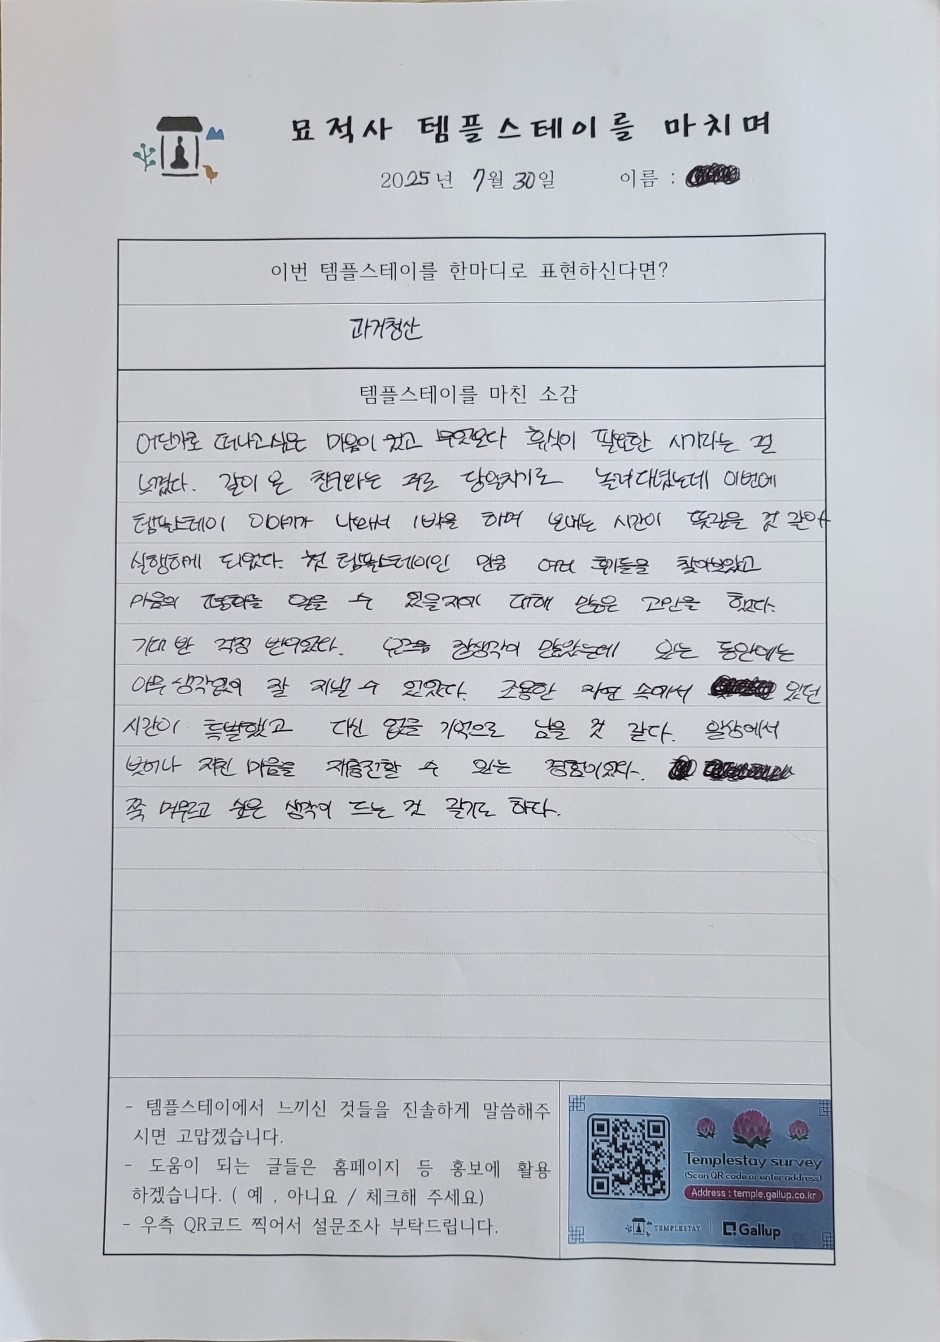 묘적사 템플스테이를 마치며
2025년 7월 30일 이름 :
이번 템플스테이를 한마디로 표현하신다면?
과거청산
템플스테이를 마친 소감
어딘가로 떠나고싶은 마음이 컸고 무엇보다 휴식이 필요한 시기라는 걸
느꼈다. 같이 온 친구와는 주로 당일치기로 놀러다녔는데 이번에
템플스테이 이야기가 나와서 1박을 하며 보내는 시간이 뜻깊을 것 같아
실행하게 되었다. 첫 템플스테이인 만큼 여러 후기들을 찾아보았고
마음의 평화를 얻을 수 있을지에 대해 많은 고민을 했다.
기대 반 걱정 반이었다. 요즘 잡생각이 많았는데 있는 동안에는
아무 생각없이 잘 지낼 수 있었다. 조용한 자연 속에서 있던
시간이 특별했고 다신 없을 기억으로 남을 것 같다. 일상에서
벗어나 지친 마음을 재충전할 수 있는 경험이었다.
쭉 머무르고 싶은 생각이 드는 것 같기도 하다.
- 템플스테이에서 느끼신 것들을 진솔하게 말씀해주
시면 고맙겠습니다.
- 도움이 되는 글들은 홈페이지 등 홍보에 활용
하겠습니다. ( 예 , 아니요 / 체크해 주세요)
- 우측 QR코드 찍어서 설문조사 부탁드립니다.
Templestay survey
(Scan QR code or enter address)
Address : temple.gallup.co.kr
TEMPLESTAY
Gallup